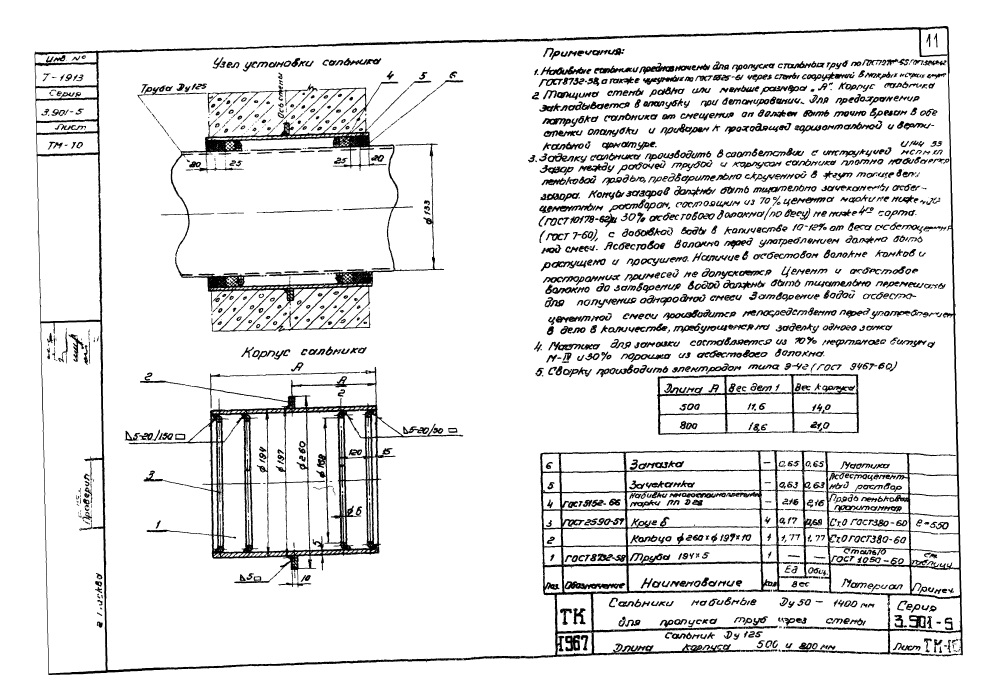 Инв. №
Т-1913
Серия
3.901-5
Лист
ТМ-10
11
Узел установки сальника
Труба Ду 125
Ось стены
4 5 6
20 25 25 20
ф 133
Корпус сальника
А
А
2
2
5-20/150
5-20/90
ф 260
120 15
ф 6
3
1
5
5
10
Проверил
г. Москва
Примечания:
1. Набивные сальники предназначены для пропуска стальных труб по
ГОСТ 8732-58, а также чугунных по ГОСТ 5525-61 через стены сооружений в мокрых и сухих
2. Толщина стены равна или меньше размера „А". Корпус сальника
закладывается в опалубку при бетонировании. Для предохранения
патрубка сальника от смещения он должен быть точно врезан в обе
стенки опалубки и приварен к проходящей горизонтальной и верти-
кальной арматуре.
3. Заделку сальника производить в соответствии с инструкцией
Зазор между рабочей трубой и корпусом сальника плотно набивается
пеньковой прядью, предварительно скрученной в жгут толще вели
зазора. Концы зазоров должны быть тщательно зачеканены асбес-
цементным раствором, состоящим из 70% цемента марки не ниже
(ГОСТ 10178-62) и 30% асбестового волокна (по весу) не ниже 4го сорта.
(ГОСТ 7-60), с добавкой воды в количестве 10-12% от веса асбестоцемент
ной смеси. Асбестовое волокно перед употреблением должно быть
распущено и просушено. Наличие в асбестовом волокне комков и
посторонних примесей не допускается Цемент и асбестовое
волокно до затворения водой должны быть тщательно перемешаны
для получения однородной смеси Затворение водой асбесто-
цементной смеси производится непосредственно перед употреблением
в дело в количестве, требующемся на заделку одного замка
4. Мастика для замазки составляется из 70% нефтяного битума
М-IV и 30% порошка из асбестового волокна.
5. Сварку производить электродом типа Э-42 (ГОСТ 9467-60)
Длина А Вес дет 1 Вес корпуса
500 11,6 14,0
800 18,6 21,0
6 Замазка — 0,65 0,65 Мастика
5 Зачеканка — 0,63 0,63 Асбестоцемент-
ный раствор
4 ГОСТ 5152-66 Набивки многослойноплетеные
марки ПП — 2,16 2,16 Прядь пеньковая
пропитанная
3 ГОСТ 2590-57 Круг 6 4 0,17 0,68 Ст0 ГОСТ 380-60 ℓ=550
2 Кольцо ф 260×ф 197×10 1 1,77 1,77 Ст0 ГОСТ 380-60
1 ГОСТ 8732-58 Труба 194×5 1 — — Сталь 10
ГОСТ 1050-60 см.
таблицу
Поз. Обозначение Наименование Кол Ед. Общ. Вес Материал Примеч.
ТК
1967
Сальники набивные Ду 50 – 1400 мм
для пропуска труб через стены
Сальник Ду 125
Длина корпуса 500 и 800 мм
Серия
3.901-5
Лист ТМ-10